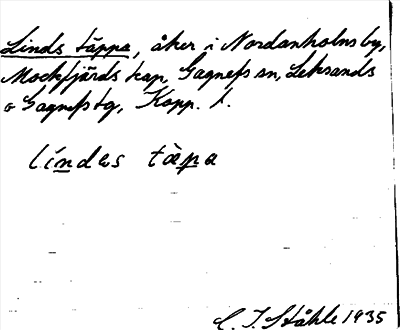 Linds täppa, åker i Nordanholns by,
Mockfjärds kap, Gagnefs sn, Leksands
o Gagnefs tg, Kopp. l.
líndes tàpa
C. I. Ståhle 1935